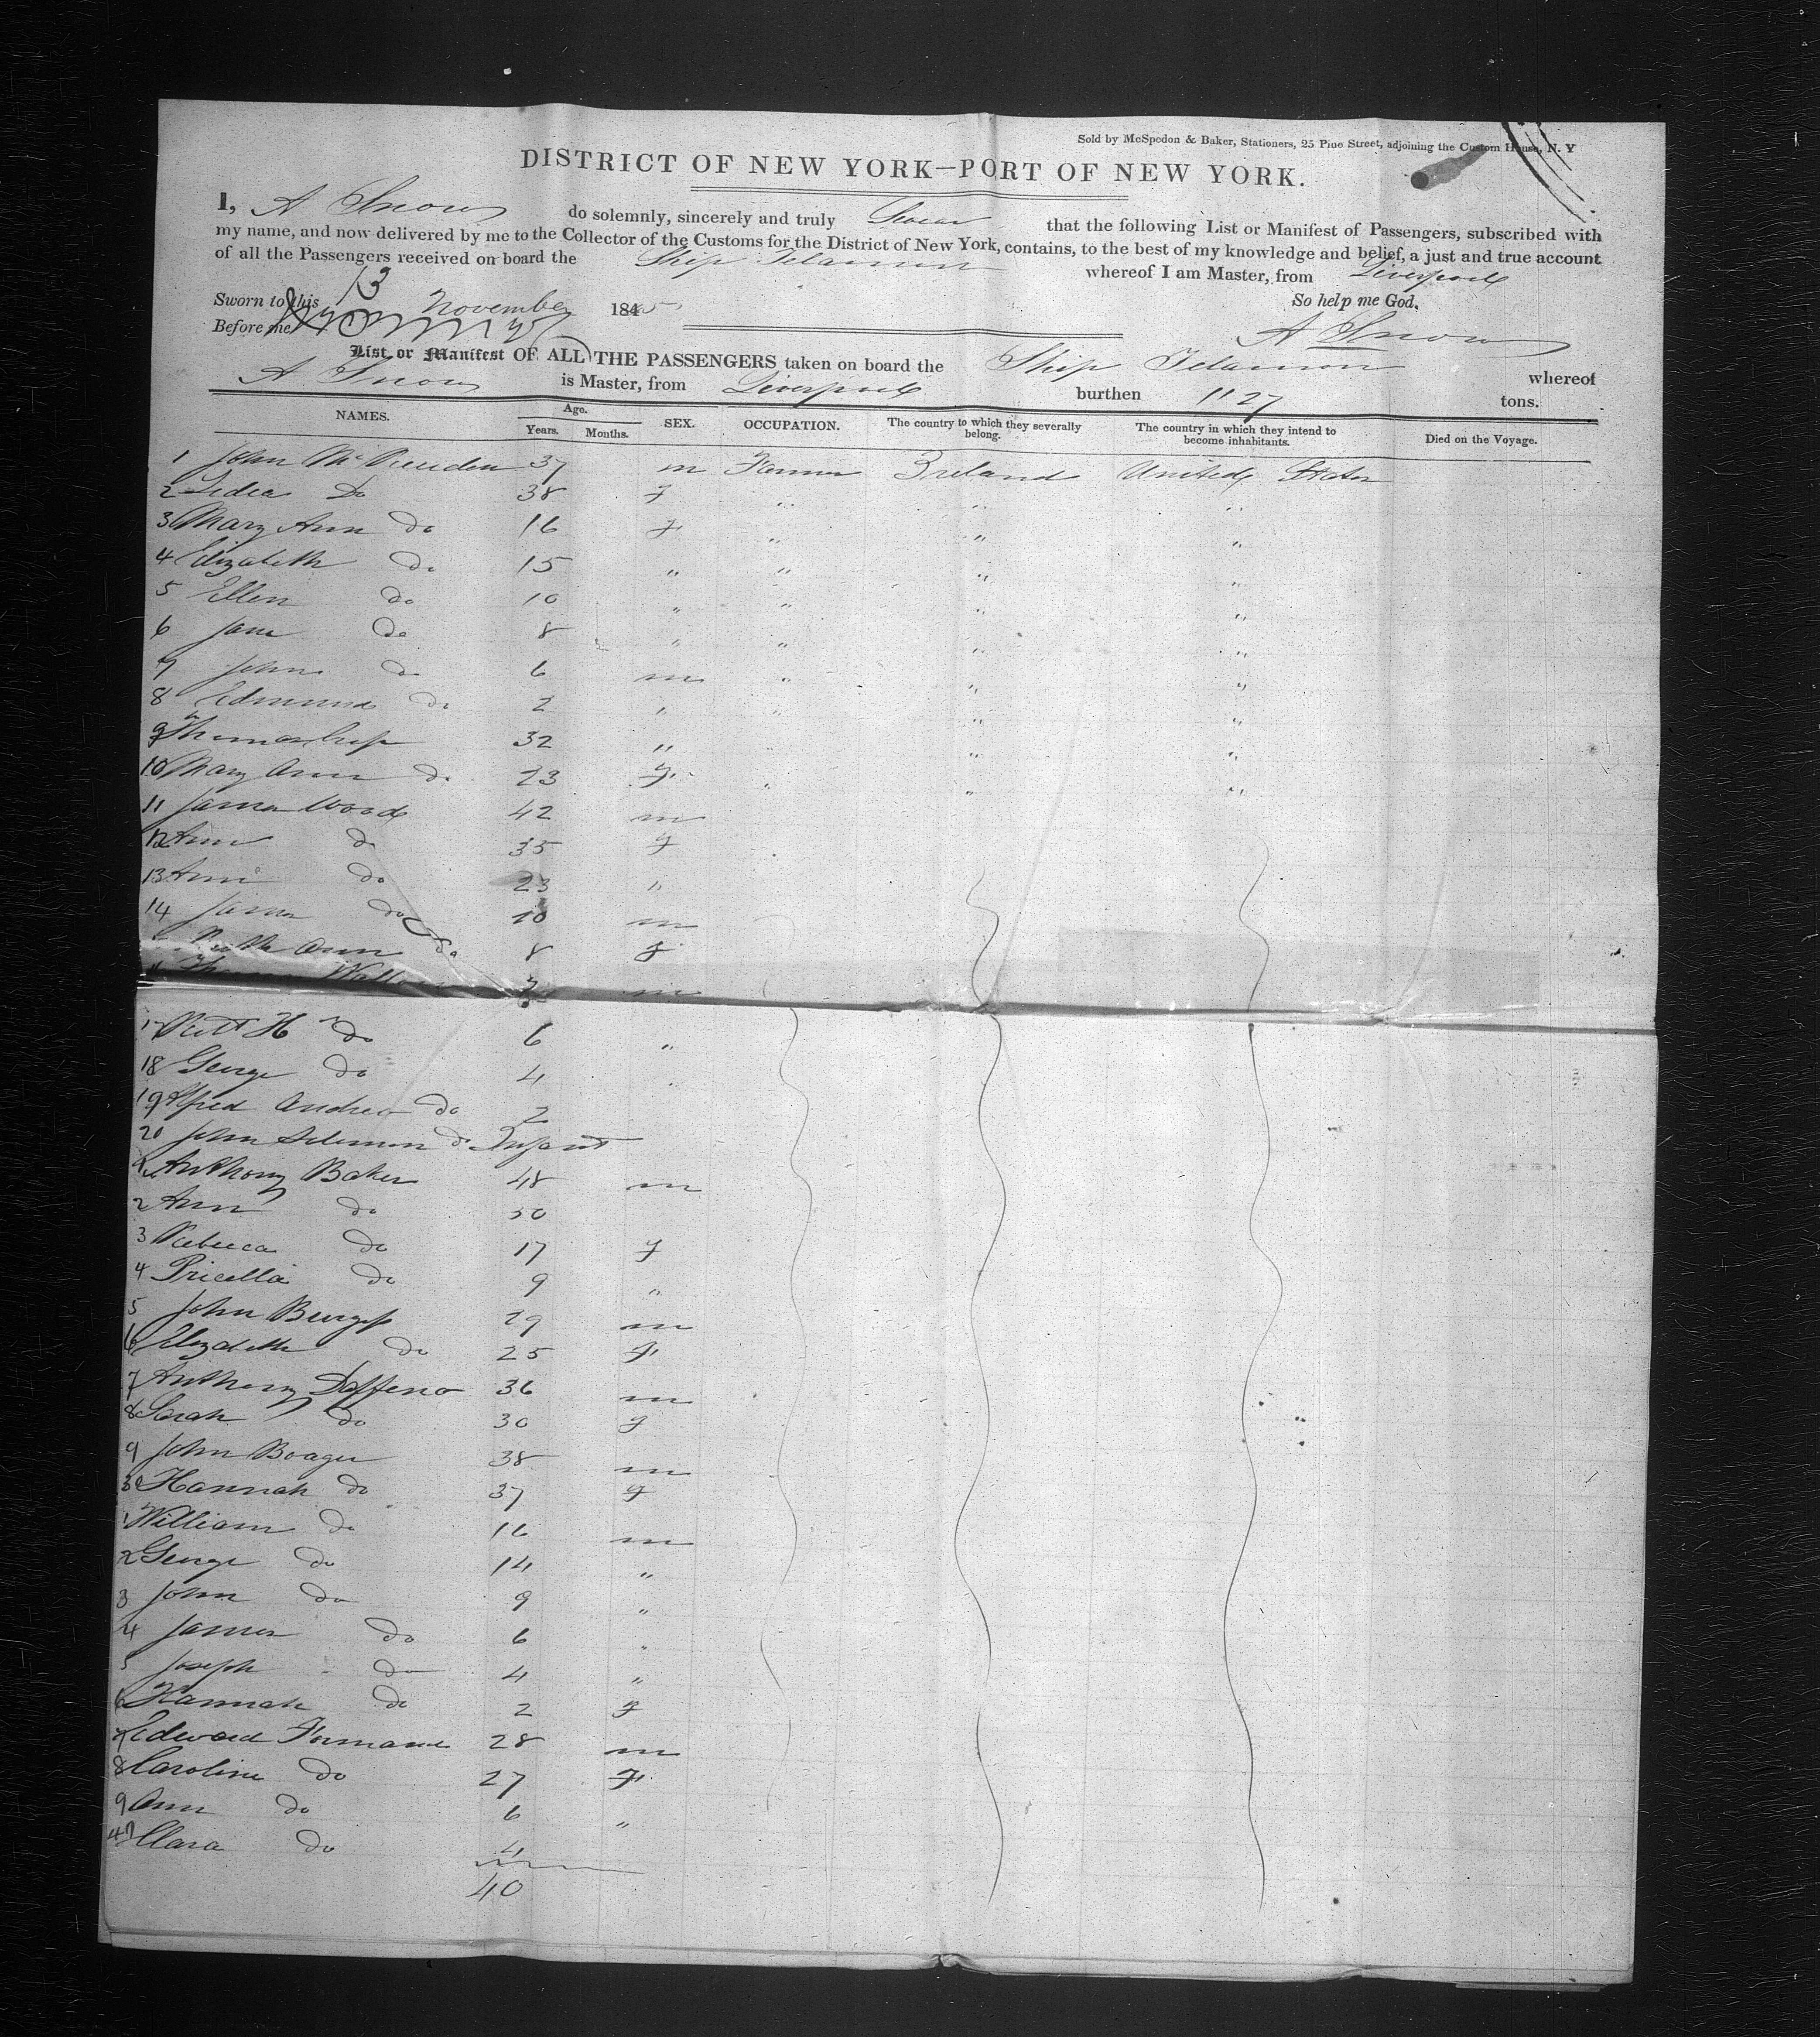 Sold by McSpedon & Baker, Stationers, 25 Pine Street, adjoining the Custom House, N. Y
DISTRICT OF NEW YORK—PORT OF NEW YORK.
I, A Snow do solemnly, sincerely and truly Swear that the following List or Manifest of Passengers, subscribed with
my name, and now delivered by me to the Collector of the Customs for the District of New York, contains, to the best of my knowledge and belief, a just and true account
of all the Passengers received on board the Ship Telamon whereof I am Master, from Liverpool
Sworn to this 13 November 1845 So help me God.
Before me A Snow
List or Manifest OF ALL THE PASSENGERS taken on board the Ship Telamon whereof
A Snow is Master, from Liverpool burthen 1127 tons.
NAMES. Age. Years. Months. SEX. OCCUPATION. The country to which they severally belong. The country in which they intend to become inhabitants. Died on the Voyage.
1 John 37 m Farmer Ireland United States
2 Do 38 f " " "
3 Mary Ann do 16 f " " "
4 Elizabeth do 15 " " " "
5 Ellen do 10 " " " "
6 Jane do 8 " " " "
7 John do 6 m " " "
8 Edmund do 2 " " " "
9 Thomas 32 " " " "
10 Mary Ann do 23 f " " "
11 James Wood 42 m
12 Ann do 35 f
13 Ann do 23 "
14 James do 10 m
Ann do 8 f
m
17 H do 6 "
18 George do 4 "
19 Alfred Andrew do 2
20 John Solomon do Infant
Anthony Baker 48 m
2 Ann do 50
3 Rebecca do 17 f
4 Pricella do 9 "
5 John Burgess 29 m
6 Elizabeth do 25 f
7 Anthony 36 m
8 Sarah do 30 f
9 John Boager 38 m
30 Hannah do 37 f
1 William do 16 m
2 George do 14 "
3 John do 9 "
4 James do 6 "
5 Joseph do 4 "
6 Hannah do 2 f
7 Edward 28 m
8 Caroline do 27 f
9 Ann do 6 "
40 Clara do 4
40